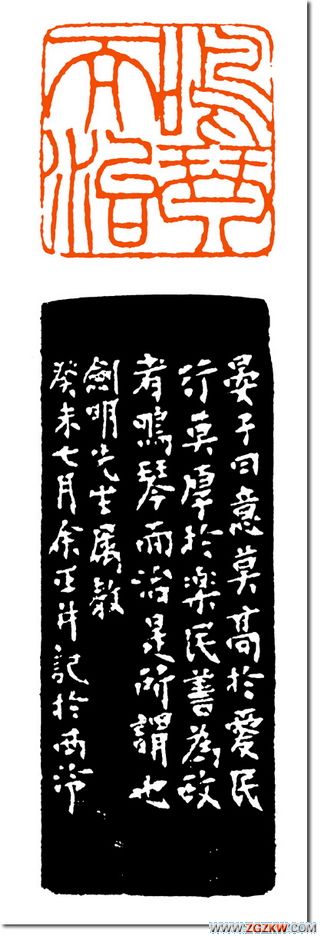 鳴琴
而治
晏子曰意莫高於愛民
行莫厚於楽民善為政
者鳴琴而治是所謂也
劍明先生屬教
癸未七月余正并記於西泠
www.ZGZKW.com